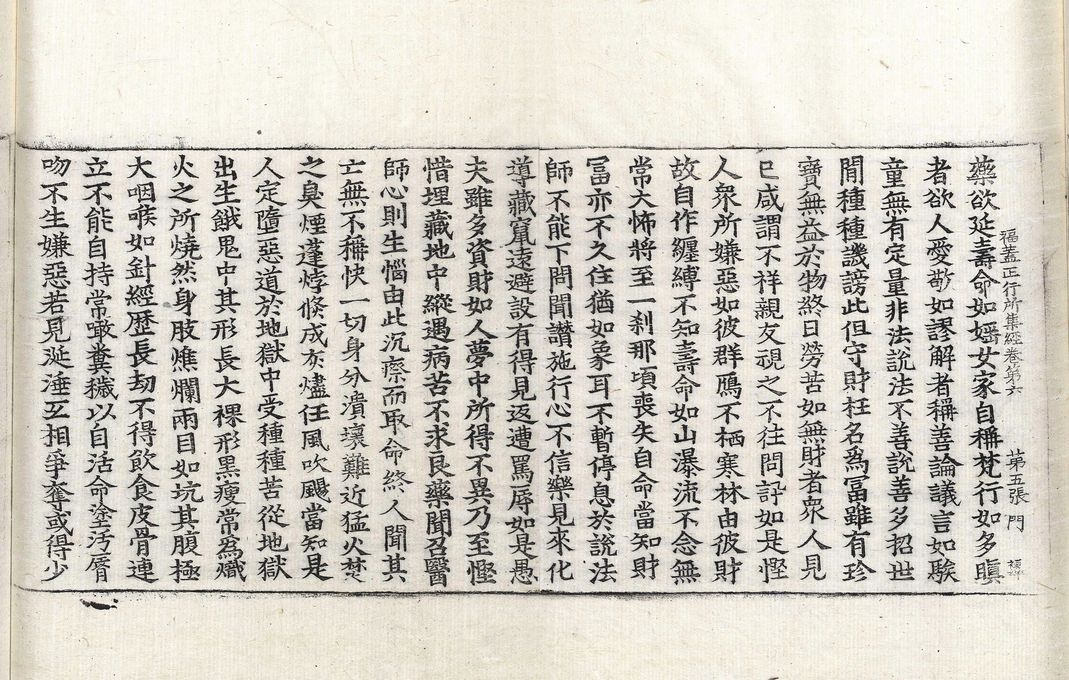 福蓋正行所集經卷第六　第五張　門
藥欲延壽命如婬女家自稱梵行如多瞋
者欲人愛敬如謬解者稱善論議言如騃
童無有定量非法說法不善說善多招世
閒種種譏謗此但守財枉名爲冨雖有珍
寶無益於物終日勞苦如無財者衆人見
巳咸謂不祥親友視之不往問訊如是慳
人衆所嫌惡如彼群鴈不栖寒林由彼財
故自作纏縛不知壽命如山瀑流不念無
常大怖將至一刹那頃喪失自命當知財
冨亦不久住猶如象耳不暫停息於說法
師不能下問聞讃施行心不信樂見來化
導藏竄遠避設有得見返遭罵辱如是愚
夫雖多資財如人夢中所得不異乃至慳
惜埋藏地中縱遇病苦不求良藥聞召醫
師心則生惱由此沉瘵而取命終人聞其
亡無不稱快一切身分潰壞難近猛火焚
之臭煙蓬㶿倐成灰燼任風吹颺當知是
人定墮惡道於地獄中受種種苦從地獄
出生餓鬼中其形長大裸形黒瘦常爲熾
火之所燒然身肢燋爛兩目如坑其腹極
大咽喉如針經歷長劫不得飮食皮骨連
立不能自持常噉糞穢以自活命塗汚脣
吻不生嫌惡若見涎唾互相爭奪或得少